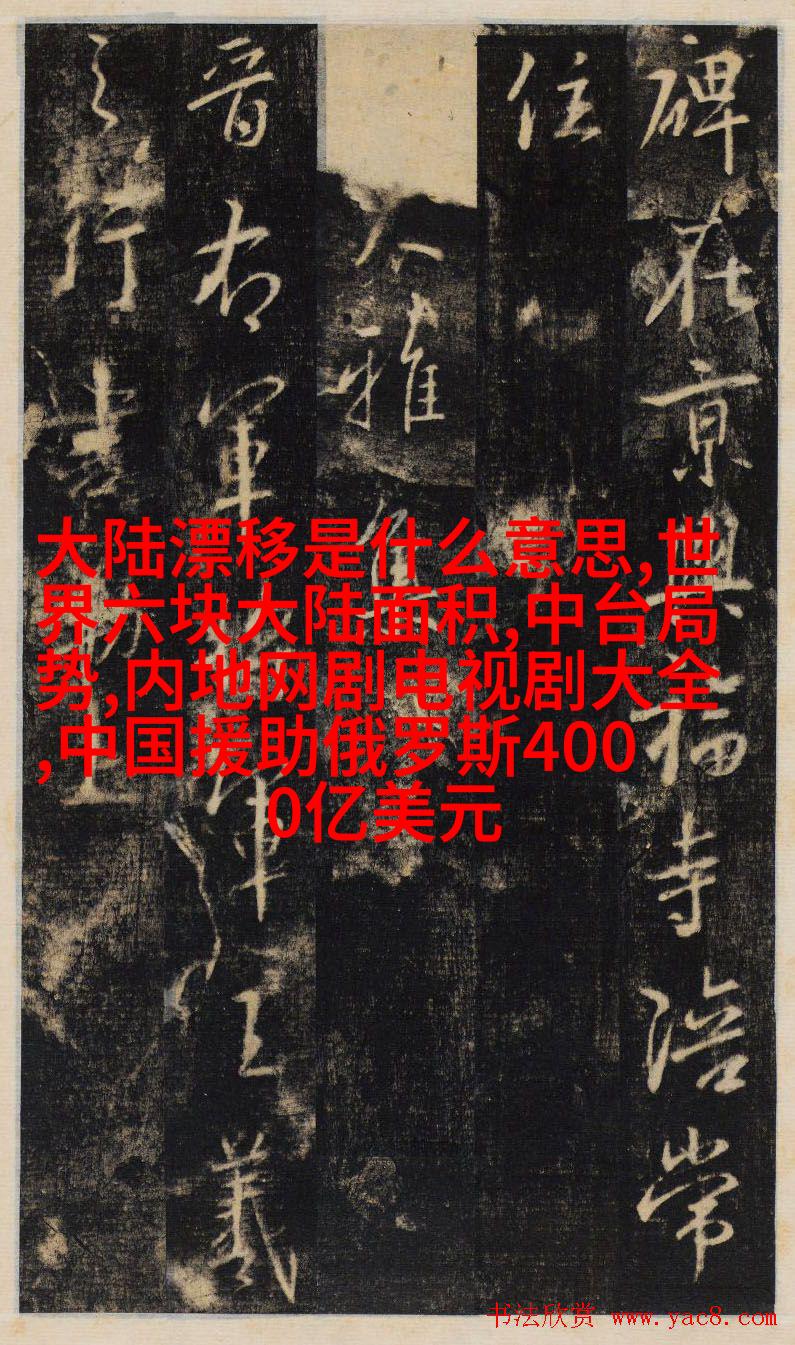 碑在京興福寺陪常
住
大雅集
晉右軍軍王羲
之行書
大陆漂移是什么意思,世
界六块大陆面积,中台局
势,内地网剧电视剧大全
,中国援助俄罗斯400
0亿美元
书法欣赏 www.yac8.com